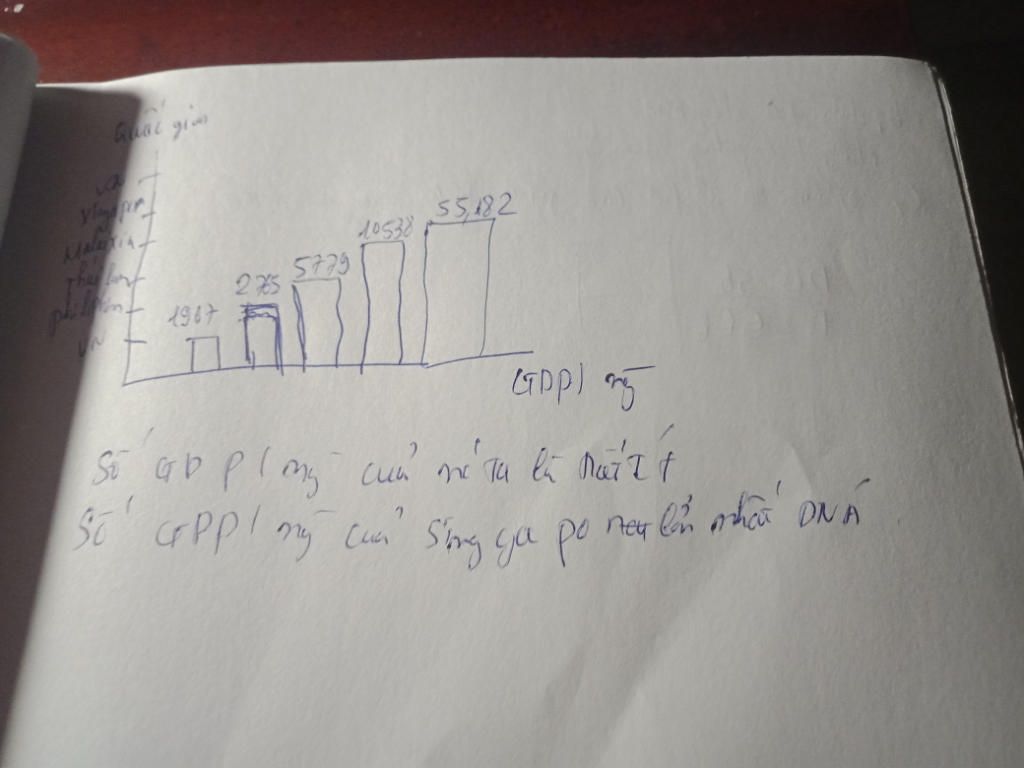 Quốc gia
Singapo
Malaixia
Thái lan
philipin
VN
1907
275
5779
10538
55,182
GDP/ ng
Số GDP/ ng của nc ta là
Số GDP/ ng của Singapo lớn nhất ĐNÁ